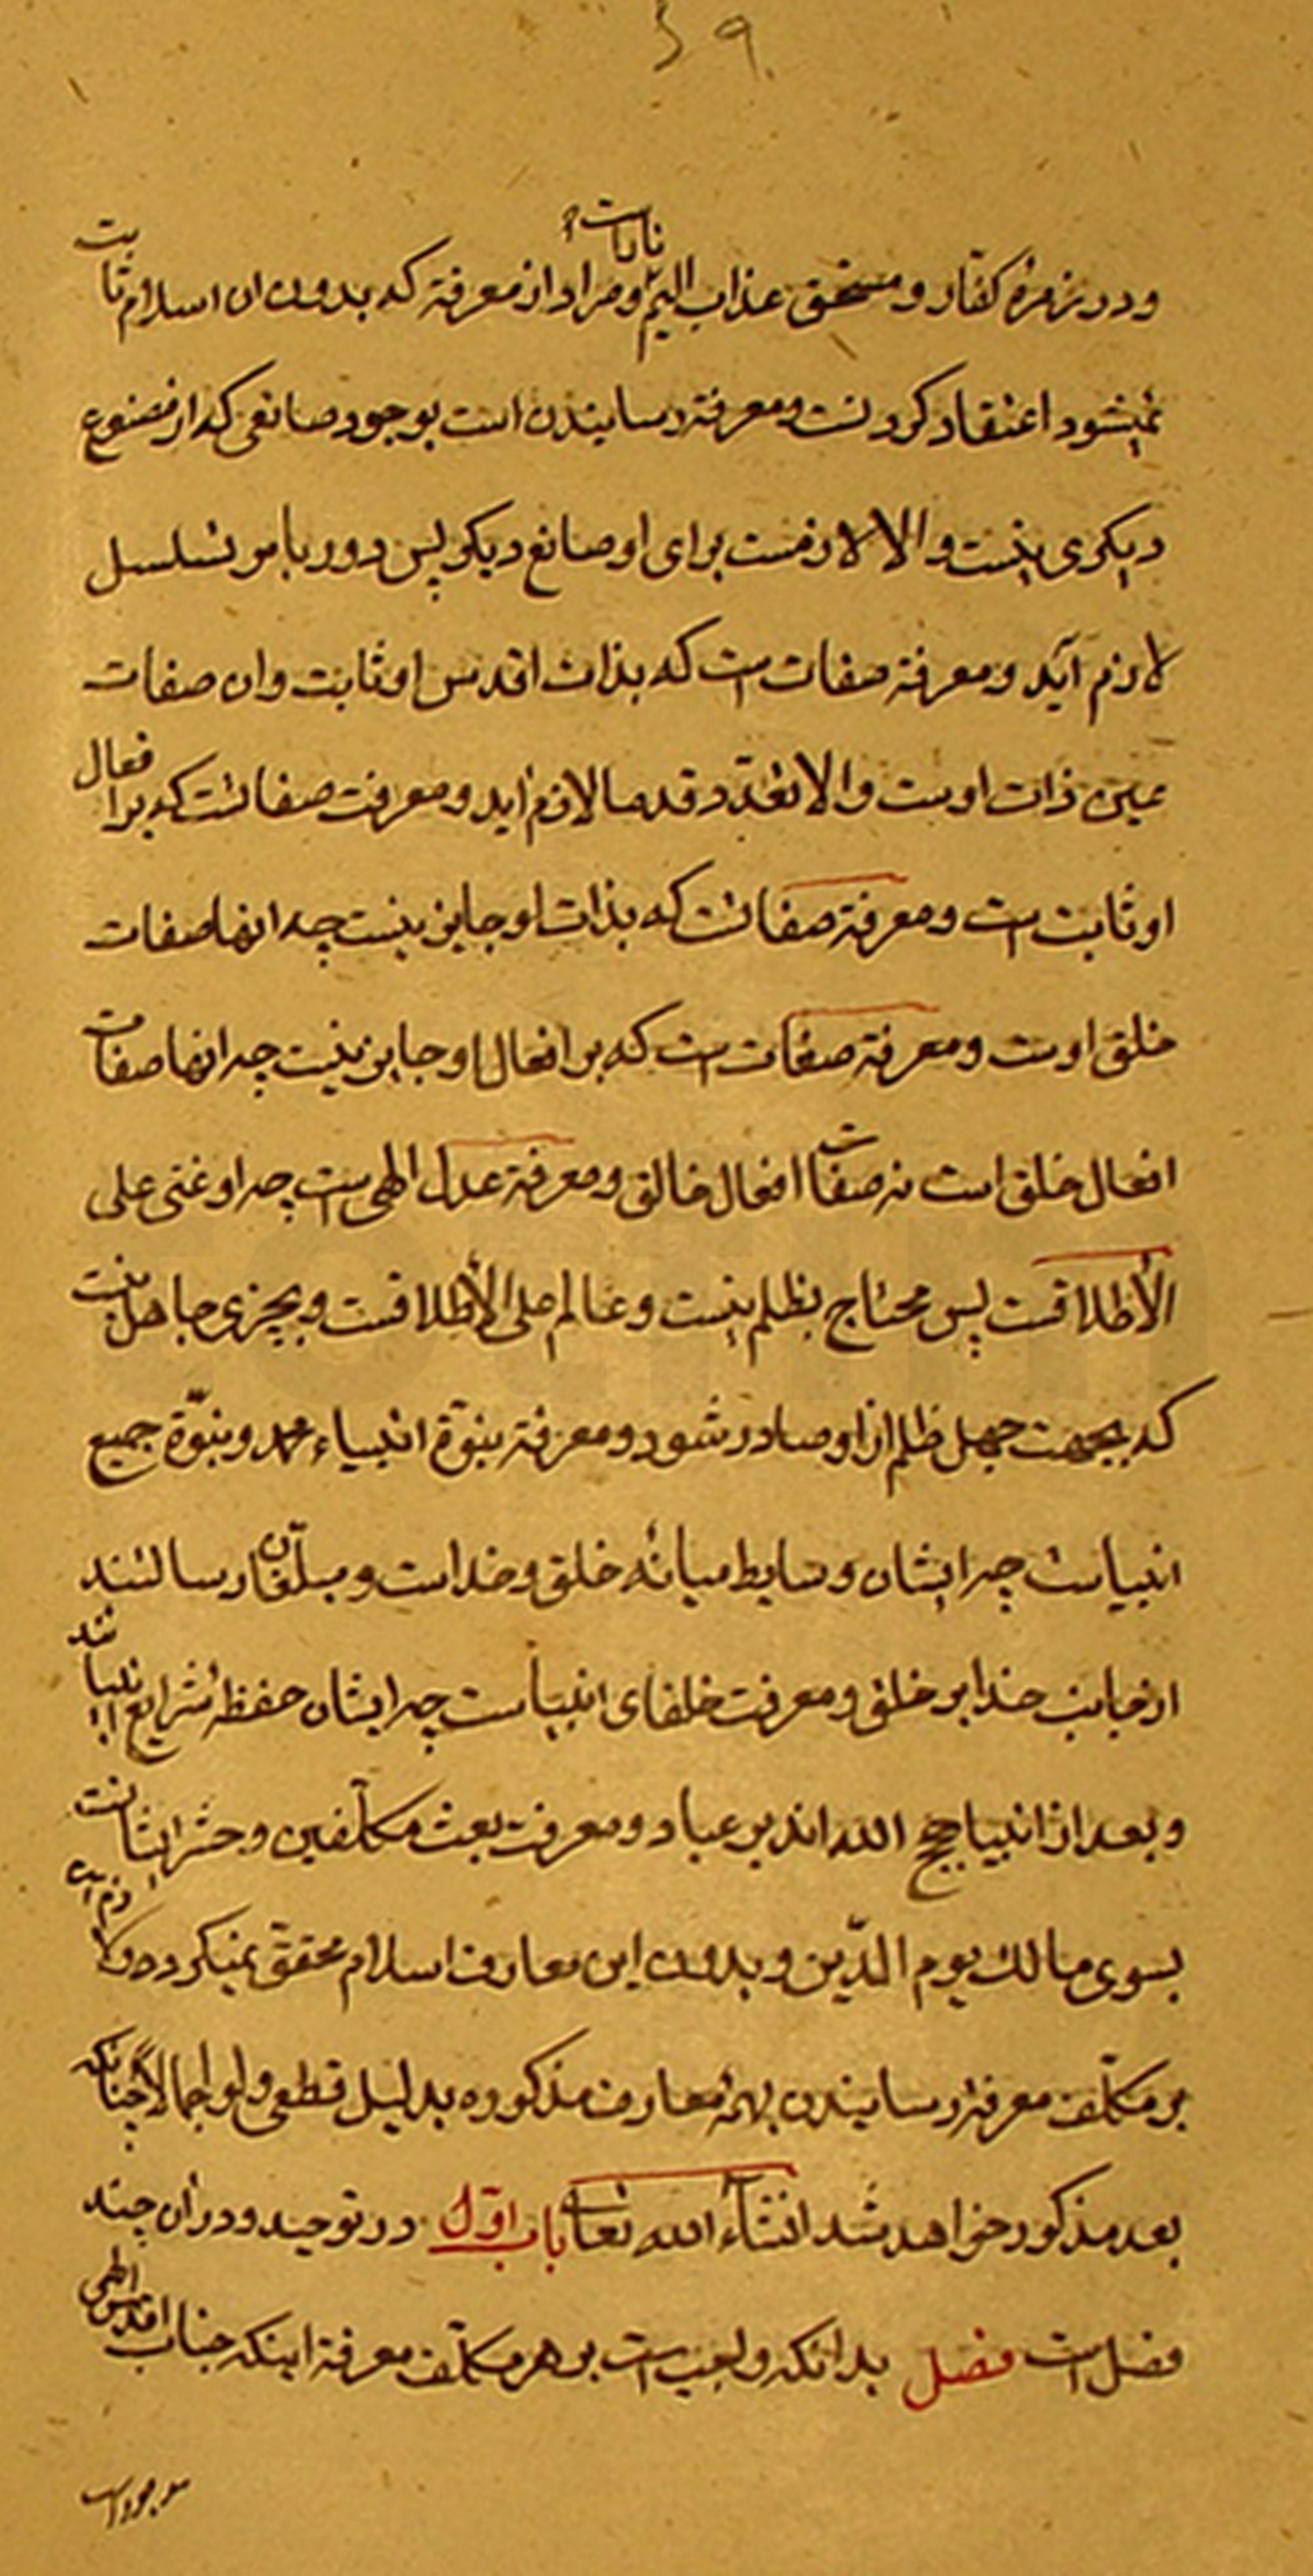 ۳۹
و در زمرهٔ کفّار و مستحق عذاب الیم و مراد از معرفة که بدون ان اسلام ثابت
نمیشود اعتقاد کردنست و معرفة رسانیدن است بوجود صانعی که او مصنوع
دیکری نیست و الا لازمست برای او صانع دیکر پس دور یا مر تسلسل
لازم آید و معرفة صفات است که بذات اقدس او ثابت و ان صفات
عین ذات اوست و الا تعدّد قدما لازم اید و معرفت صفاتست که بر افعال
او ثابت است و معرفة صفاتست که بذات او جایز نیست چه انها صفات
خلق اوست و معرفة صفات است که بر افعال او جایز نیست چه انها صفات
افعال خلق است نه صفات افعال خالق و معرفة عدل الهی است چه او غنی علی
الأطلاقست پس محتاج بظلم نیست و عالم علی الأطلاقست و بچیزی جاهل نیست
که بجهت جهل ظلم از او صادر شود و معرفة نبوّة انبیاء محمد و نبوّة جمیع
انبیاست چه ایشان وسایط میانهٔ خلق و خداست و مبلّغان رسالتند
از جانب خدا بر خلق و معرفت خلفای انبیاست چه ایشان حفظهٔ شرایع انبیا شد
و بعد از انبیا حجج الله اند بر عباد و معرفت بعث مکلّفین و حشر ایشانست
بسوی مالک یوم الدّین و بدون این معارف اسلام محقّق نمیکردد و لازم است
بر مکلّف معرفة رسانیدن بهمهٔ معارف مذکوره بدلیل قطعی و لو اجمالاً چنانکه
بعد مذکور خواهد شد انشاء الله تعالی باب اوّل در توحید و در ان چند
فصل است فصل بدانکه واجب است بر هر مکلّف معرفة اینکه جناب اقدس الهی
موجود است